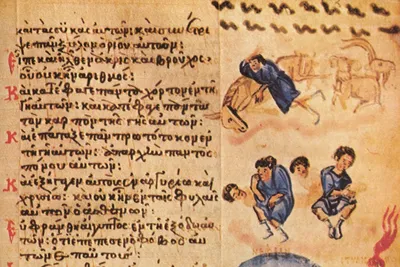 καὶ τὰς συκὰς αὐτῶν· καὶ συνέτρι
ψε πᾶν ξύλον ὁρίου αὐτῶν:
Εἶπε καὶ ἦλθεν ἀκρὶς καὶ βροῦχος·
οὗ οὐκ ἦν ἀριθμος:
Καὶ κατέφαγε χόρτον ἐν τῇ
γῇ αὐτῶν· καὶ κατέφαγε τὸν
καρπὸν τῆς γῆς αὐτῶν:
Καὶ ἐπάταξε πᾶν πρωτότοκον ἐν
τῇ γῇ αὐτῶν· ἀπαρχὴν παντὸς
πόνου αὐτῶν:
Καὶ ἐξήγαγεν αὐτοὺς ἐν ἀργυρίω καὶ
χρυσίω· καὶ οὐκ ἦν ἐν ταῖς φυλαῖς
αὐτῶν ὁ ἀσθενῶν:
Εὐφράνθη Αἴγυπτος ἐν τῇ ἐξόδω αὐ
τῶν· ὅτι ἐπέπεσεν ὁ φόβος αὐ
τῶν ἐπ' αὐτούς: